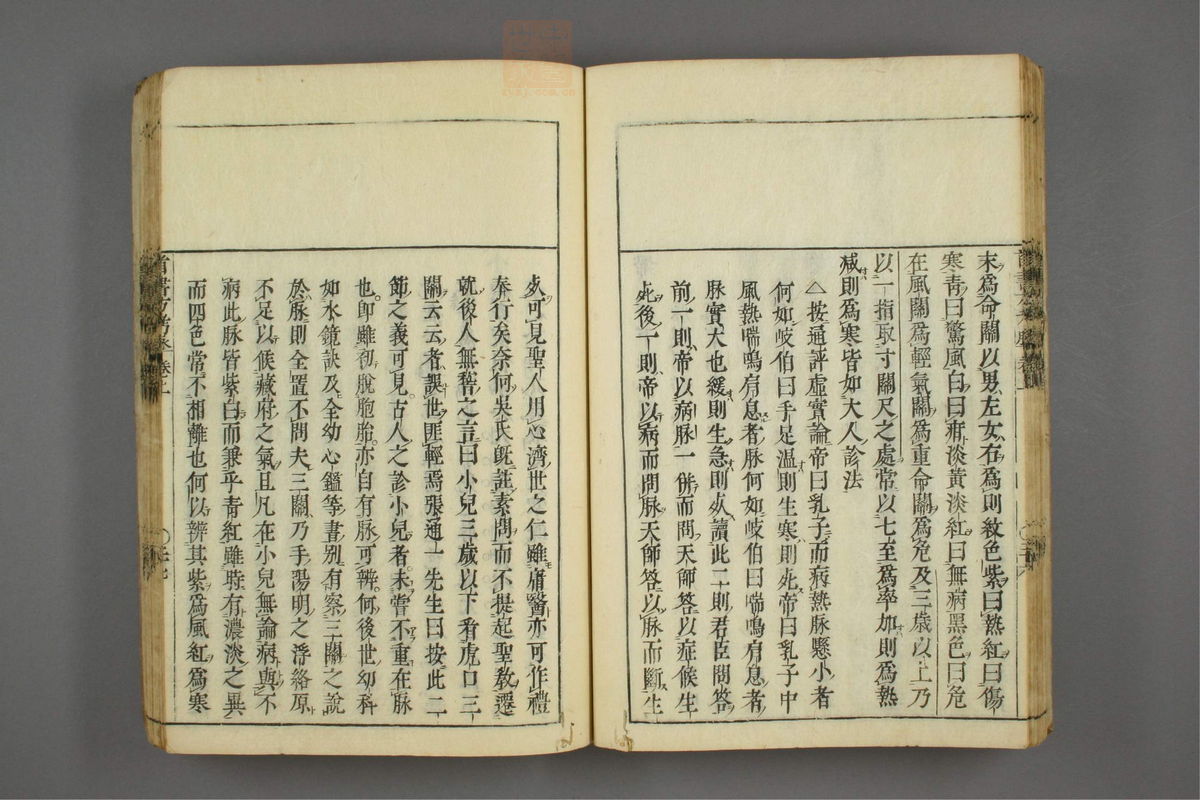 末爲命關以男左女右爲則紋色紫曰熱紅曰傷
寒青曰驚風白曰疳淡黃淡紅曰無病黑色曰危
在風關爲輕氣關爲重命關爲危及三歲以上乃
以一指取寸關尺之處常以七至爲率加則爲熱
减則爲寒皆如大人診法
△按通評虛實論帝曰乳子而病熱脉懸小者
何如岐伯曰手足温則生寒則死帝曰乳子中
風熱喘鳴肩息者脉何如岐伯曰喘鳴肩息者
脉實大也緩則生急則死讀此二則君臣問答
前一則帝以病脉一併而問天師答以症候生
死後一則帝以病而問脉天師答以脉而斷生
死可見聖人用心濟世之仁雖庸醫亦可作禮
奉行矣奈何吳氏旣註素問而不提起聖教遷
就後人無稽之言曰小兒三歲以下看虎口三
關云云者誤世匪輕焉張通一先生曰按此二
節之義可見古人之診小兒者未嘗不重在脉
也即雖初脫胞胎亦自有脉可辨何後世幼科
如水鏡訣及全幼心鑑等書别有察三關之說
於脉則全置不問夫三關乃手陽明之浮絡原
不足以候藏府之氣且凡在小兒無論病與不
病此脉皆紫白而兼乎青紅雖時有濃淡之異
而四色常不相離也何以辨其紫爲風紅爲寒